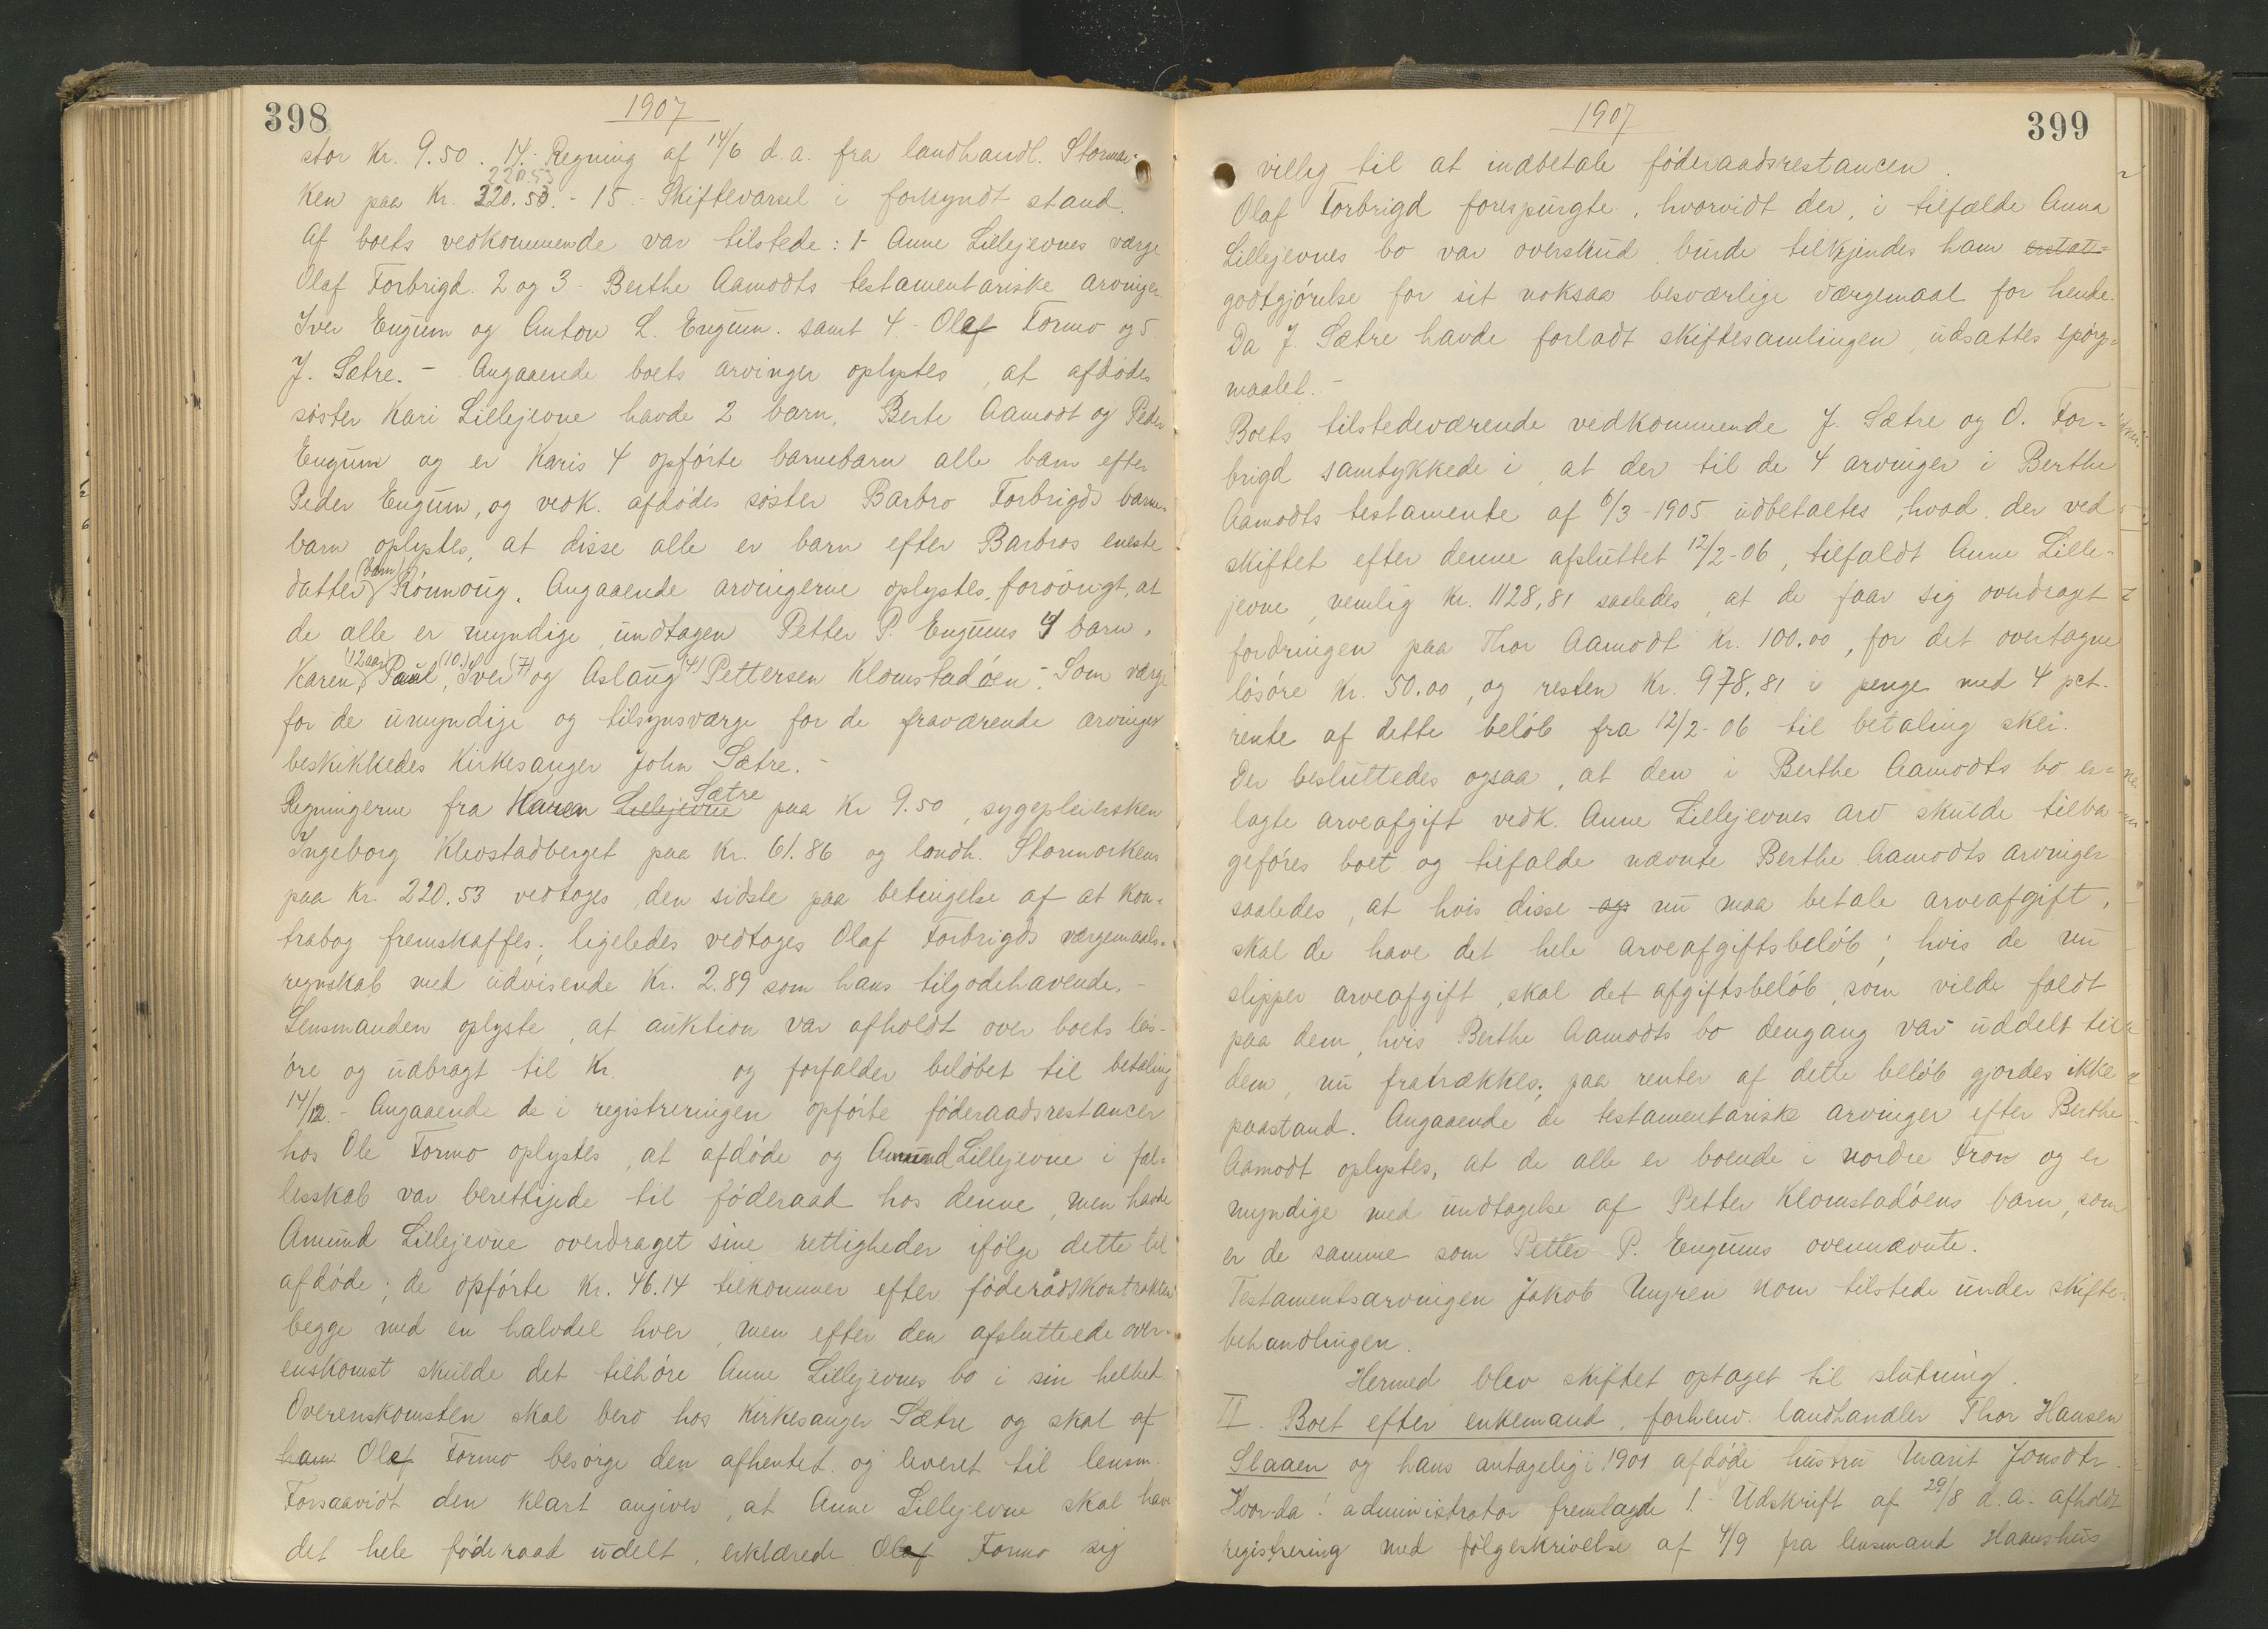 398
1907
stor Kr. 9.50. 14.- Regning af 14/6 d.a. fra landhandl. Stormor-
220.53
ken paa Kr. 220.53.- 15.- Skiftevarsel i forkyndt stand.
Af boets vedkommende var tilstede: 1- Anne Lillejevnes værge
Olaf Forbrigd. 2 og 3- Berthe Aamodts testamentariske arvinger
Iver Engum og Anton L. Engum. samt 4.- Olaf Formo og 5
J. Sætre. - Angaaende boets arvinger oplystes, at afdødes
søster Kari Lillejevne havde 2 barn, Berte Aamodt og Peder
Engum og er Karis 4 opførte barnebarn alle barn efter
Peder Engum, og vedk. afdødes søster Barbro Forbrigds barne-
barn oplystes, at disse alle er barn efter Barbros eneste
datter (barn) Rønnoug. Angaaende arvingerne oplystes, forøvrigt, at
de alle er myndige, undtagen Petter P. Engums 4 barn,
Karen (12 aar), Paul (10), Iver (7) og Aslaug (4) Pettersen Klomstadøen.- Som værge
for de umyndige og tilsynsværge for de fraværende arvinger
beskikkedes Kirkesanger John Sætre. -
Regningerne fra Karen Lillejevne Sætre paa Kr 9.50, sygepleiersken
Ingeborg Klvostadberget paa Kr. 61.86 og landh. Stormorkens
paa Kr. 220.53 vedtoges, den sidste paa betingelse af at Kon-
trabog fremskaffes; ligeledes vedtoges Olaf Forbrigds værgemaals-
regnskab med udvisende Kr. 2.89 som hans tilgodehavende. -
Lensmanden oplyste, at auktion var afholdt over boets løs-
øre og udbragt til Kr. og forfalder beløbet til betaling
14/12. - Angaaende de i registreringen opførte føderaadsrestancer
hos Ole Formo oplystes, at afdøde og Amund Lillejevne i fæl-
lesskab var berettigede til føderaad hos denne, men havde
Amund Lillejevne overdraget sine rettigheder ifølge dette til
afdøde; de opførte Kr. 46.14 tilkommer efter føderådskontrakten
begge med en halvdel hver, men efter den afsluttede over-
enskomst skulde det tilhøre Anne Lillejevnes bo i sin helhet.
Overenskomsten skal bero hos Kirkesanger Sætre og skal af
ham Olaf Formo besørge den afhentet og leveret til lensm.
Forsaavidt den klart angiver, at Anne Lillejevne skal have
det hele føderaad udelt, erklærede Olaf Formo sig
399
1907
villig til at indbetale føderaadsrestancen.
Olaf Forbrigd forespurgte, hvorvidt der, i tilfælde Anna
Lillejevnes bo var overskud, burde tilkjendes ham erstat-
godtgjørelse for sit noksaa besværlige værgemaal for hende.
Da J. Sætre havde forladt skiftesamlingen, udsattes spørgs-
maalet. -
Boets tilstedeværende vedkommende J. Sætre og O. For-
brigd samtykkede i, at der til de 4 arvinger i Berthe
Aamodts testamente af 6/3-1905 udbetaltes, hvad der ved
skiftet efter denne afsluttet 12/2-06, tilfaldt Anne Lille-
jevne, nemlig Kr. 1128,81 saaledes, at de faar sig overdraget
fordringen paa Thor Aamodt Kr. 100.00, for det overtagne
løsøre Kr. 50.00, og resten Kr. 978,81 i penge med 4 pct.
rente af dette beløb fra 12/2-06 til betaling sker.
Der besluttedes ogsaa, at den i Berthe Aamodts bo er-
lagte arveafgift vedk. Anne Lillejevnes arv skulde tilba-
geføres boet og tilfalde nævnte Berthe Aamodts arvinger
saaledes, at hvis disse og nu maa betale arveafgift,
skal de have det hele arveafgiftsbeløb; hvis de nu
slipper arveafgift, skal det afgiftsbeløb, som vilde faldt
paa dem, hvis Berthe Aamodts bo dengang var uddelt til
dem, nu fratrækkes; paa renter af dette beløb gjordes ikke
paastand. Angaaende de testamentariske arvinger efter Berthe
Aamodt oplystes, at de alle er boende i nordre Fron og er
myndige med undtagelse af Petter Klomstadøens barn, som
er de samme som Petter P. Engums ovennævnte.
Testamentsarvingen Jakob Myren kom tilstede under skifte-
behandlingen.
Hermed blev skiftet optaget til slutning.
II. Boet efter enkemand, forhenv. landhandler Thor Hansen
Slaaen og hans antagelig i 1901 afdøde hustru Marit Jonsdtr.
Hvorda! administrator fremlagde 1.- Udskrift af 29/8 d.a. afholdt
registrering med følgeskrivelse af 4/9 fra lensmand Haanshus